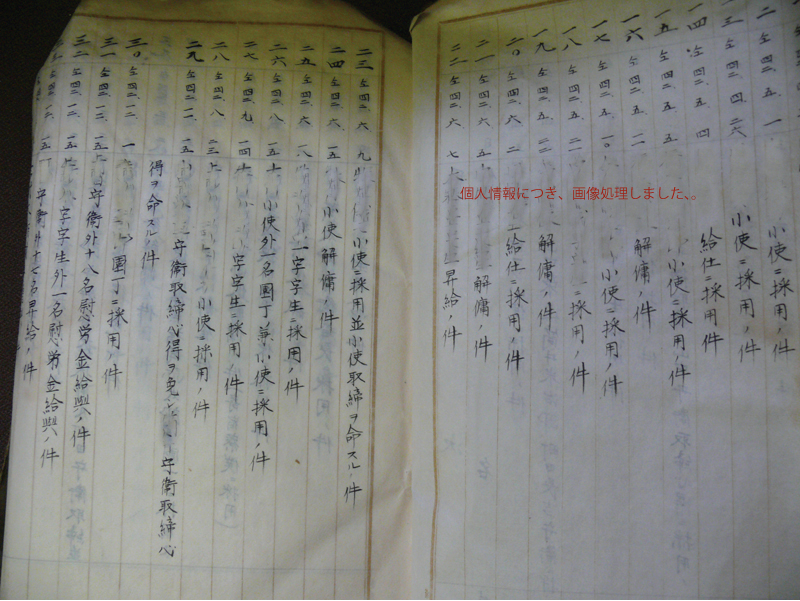 二 仝 四二 五 一 小使ニ採用ノ件
一三 仝 四二 四 二六 小使ニ採用ノ件
一四 仝 四二 五 四 給仕ニ採用ノ件
一五 仝 四二 五 五 小使ニ採用ノ件
一六 仝 四二 五 二 解傭ノ件
一七 仝 四二 五 一〇 小使ニ採用ノ件
一八 仝 四二 五 二一 ニ採用ノ件
一九 仝 四二 五 二二 解傭ノ件
二〇 仝 四二 六 二 給仕ニ採用ノ件
二一 仝 四二 六 五 解傭ノ件
二二 仝 四二 六 七 昇給ノ件
個人情報につき、画像処理しました、。
二三 仝 四二 六 九 小使ニ採用並小使取締ヲ命スルノ件
二四 仝 四二 六 一五 小使 解傭ノ件
二五 仝 四二 六 一八 一 字字生ニ採用ノ件
二六 仝 四二 八 一五 小使外一名園丁兼小使ニ採用ノ件
二七 仝 四二 九 一四 字字生ニ採用ノ件
二八 仝 四二 八 二三 小使ニ採用ノ件
二九 仝 四二 一一 一五 守衛取締心得ヲ免シ 守衛取締心
得ヲ命スルノ件
三〇 仝 四二 一二 一 園丁ニ採用ノ件
三一 仝 四二 一二 一五 守衛外十八名慰労金給與ノ件
三二 仝 四二 一二 一五 字字生外一名慰労金給與ノ件
守衛外十七名昇給ノ件